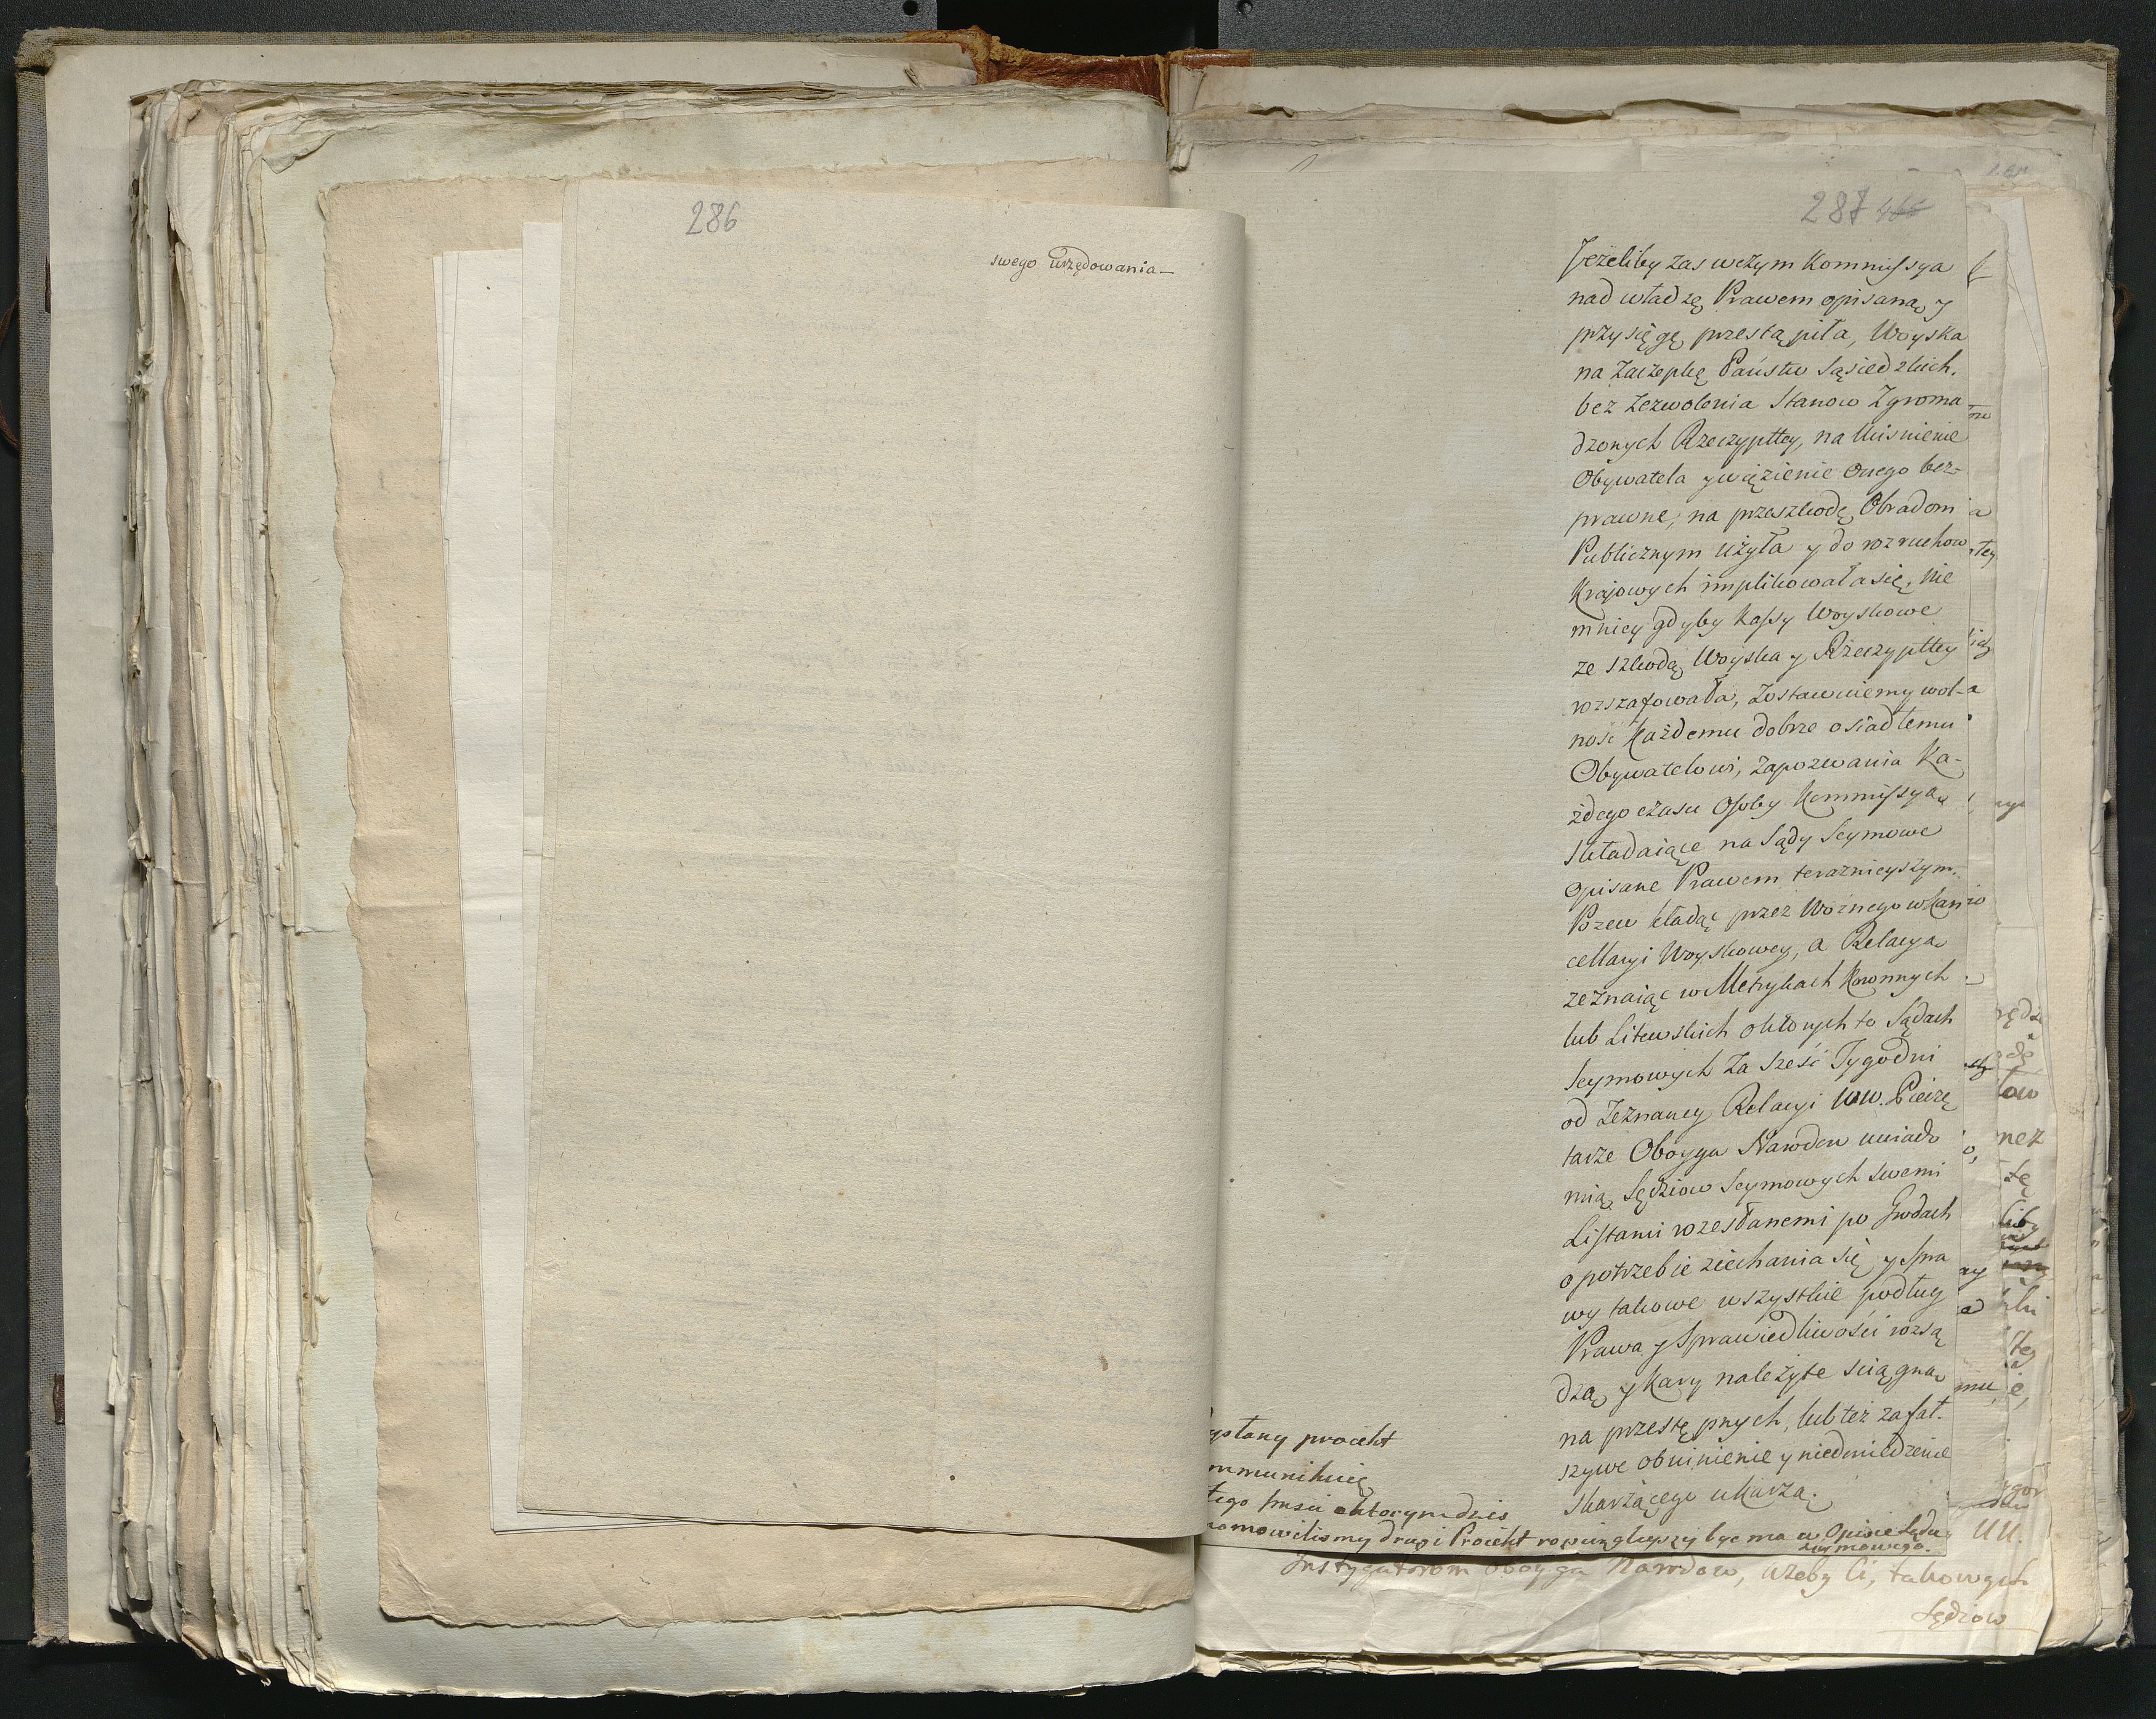 286
swego urzędowania —
287
Jeżeliby zas wczym Kommissya
nad władzę Prawem opisaną y
przysięgę przestąpiła, Woyska
na Zaczepkę Państw Sąsiedzkich.
bez Zezwolenia Stanow Zgroma
dzonych Rzeczypttey, na Uciśnienie
Obywatela y więzienie Onego bez-
prawne, na przeszkodę Obradom
Publicznym użyła y do rozruchow
Krajowych implikowała się, nie
mniey gdyby Kassy Woyskowe
ze szkodą Woyska y Rzeczypttey
rozszafowała, Zostawuiemy wol-
ność Każdemu dobrze osiadłemu
Obywatelowi, Zapozwania Ka-
żdego czasu Osoby Kommissyą
Składaiące na Sądy Seymowe
opisane Prawem teraznieyszym.
Pozew kładąc przez Woźnego w Kan
cellaryi Woyskowey, a Relacya
zeznaiąc w Metrykach Koronnych
lub Litewskich o których to Sądach
Seymowych Za Sześć Tygodni
od Zeznaney Relacyi WW. Piecze
tarze Oboyga Narodow uwiado
mią Sędziow Seymowych swemi
Listami rozesłanemi po Grodach
o potrzebie ziechania się y Spra
wy takowe wszystkie podług
Prawa y Sprawiedliwości rozsą
dzą y Kary należyte sciągną
na przestępnych, lub też za fał.
szywe obwinienie y niedowiedzenie
Skarżącego ukarzą.
proiekt
mmunikuię
tego
omowilismy drugi Proiekt być ma w Opisie Sądu
Seymowego.
Instygatorom Oboyga Narodow, ażeby Ci, takowych
Sędziow